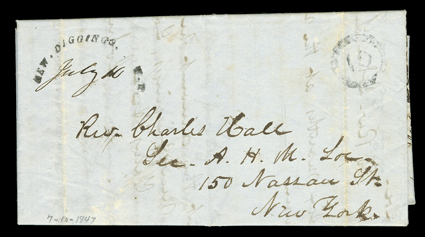 NEW. DIGGINGS. W.T.
July 10
10
Rev. Charles Hall
Sec. A. H. M. Soc
150 Nassau St.
New York.
7-10-1847